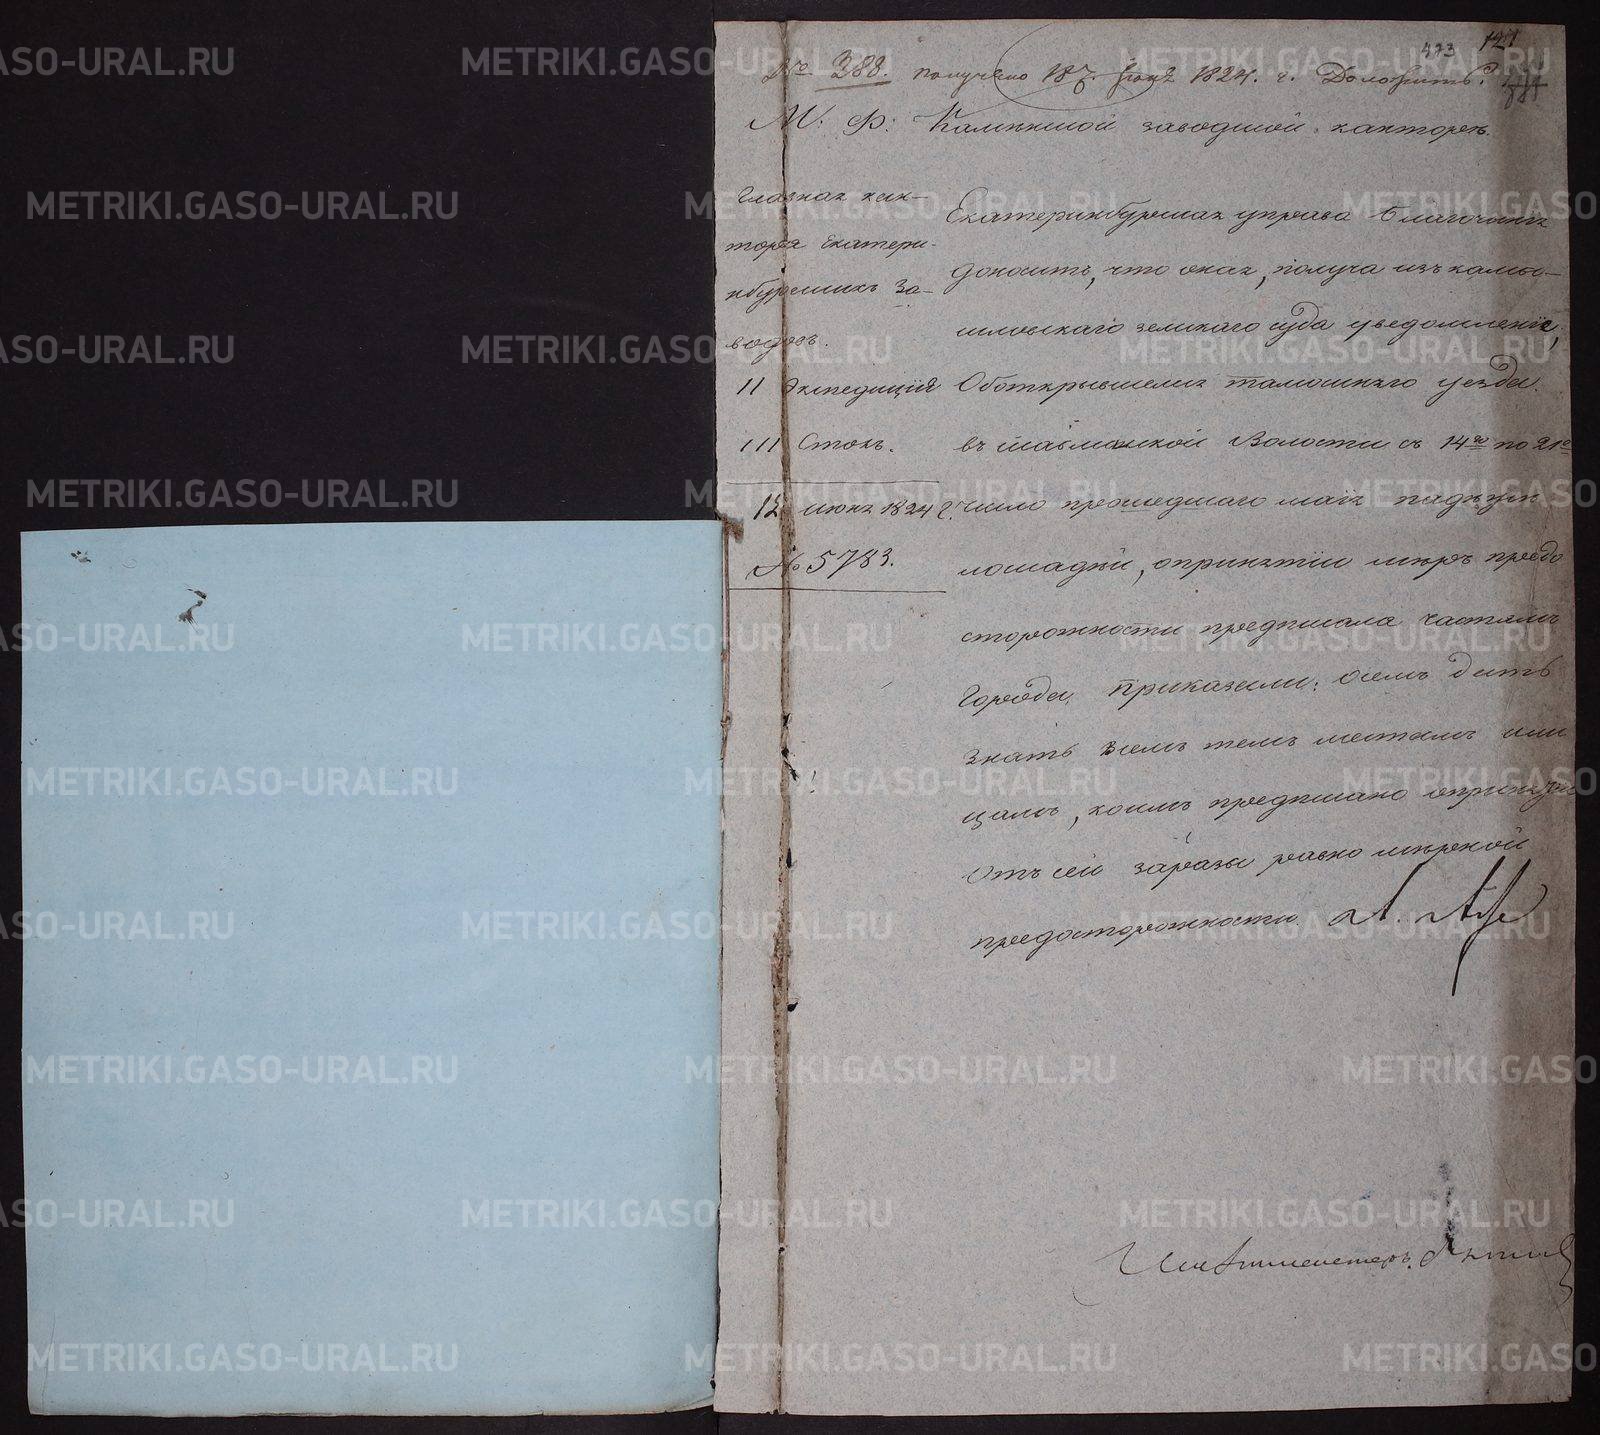 473 121
№ 388. получено 18 июня 1824. г. Доложить.
М: Ф: Каменской заводской канторе.
Главная кан-
тора Екатери-
нбургскихъ За-
водовъ.
II Экспедиция
III Столъ.
12 июня 1824 г.
№ 5783.
Екатеринбургская управа Благочиния
доноситъ, что оная, получа изъ камы-
шловскаго земскаго суда уведомление,
Оботкрывшемся тамошняго уезда.
въ волости съ 14го по 21е
число прошедшаго мая падежу
лошадей, опринятии меръ предо
сторожности предписала частямъ
Города, Приказали: Осемъ дать
знать всемъ темъ местамъ или
цамъ, коимъ предписано
Отъ сей заразы равно мерной
предосторожности